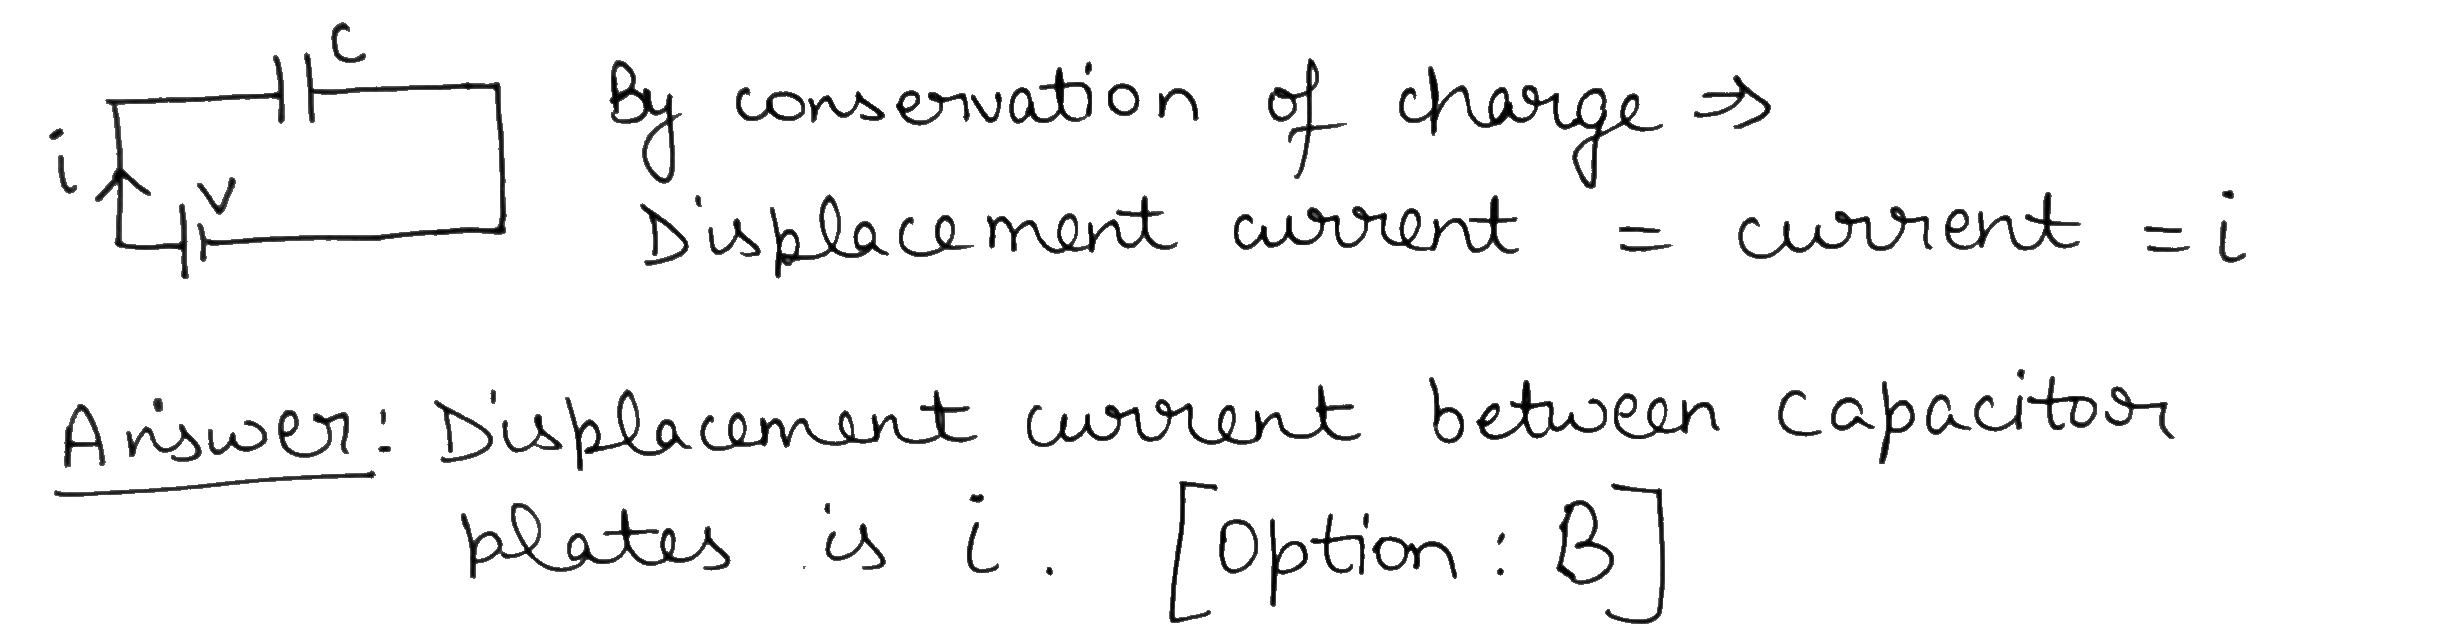 C
By conservation of charge ⇒
i
V
Displacement current = current = i
Answer: Displacement current between capacitor
plates is i. [Option: B]